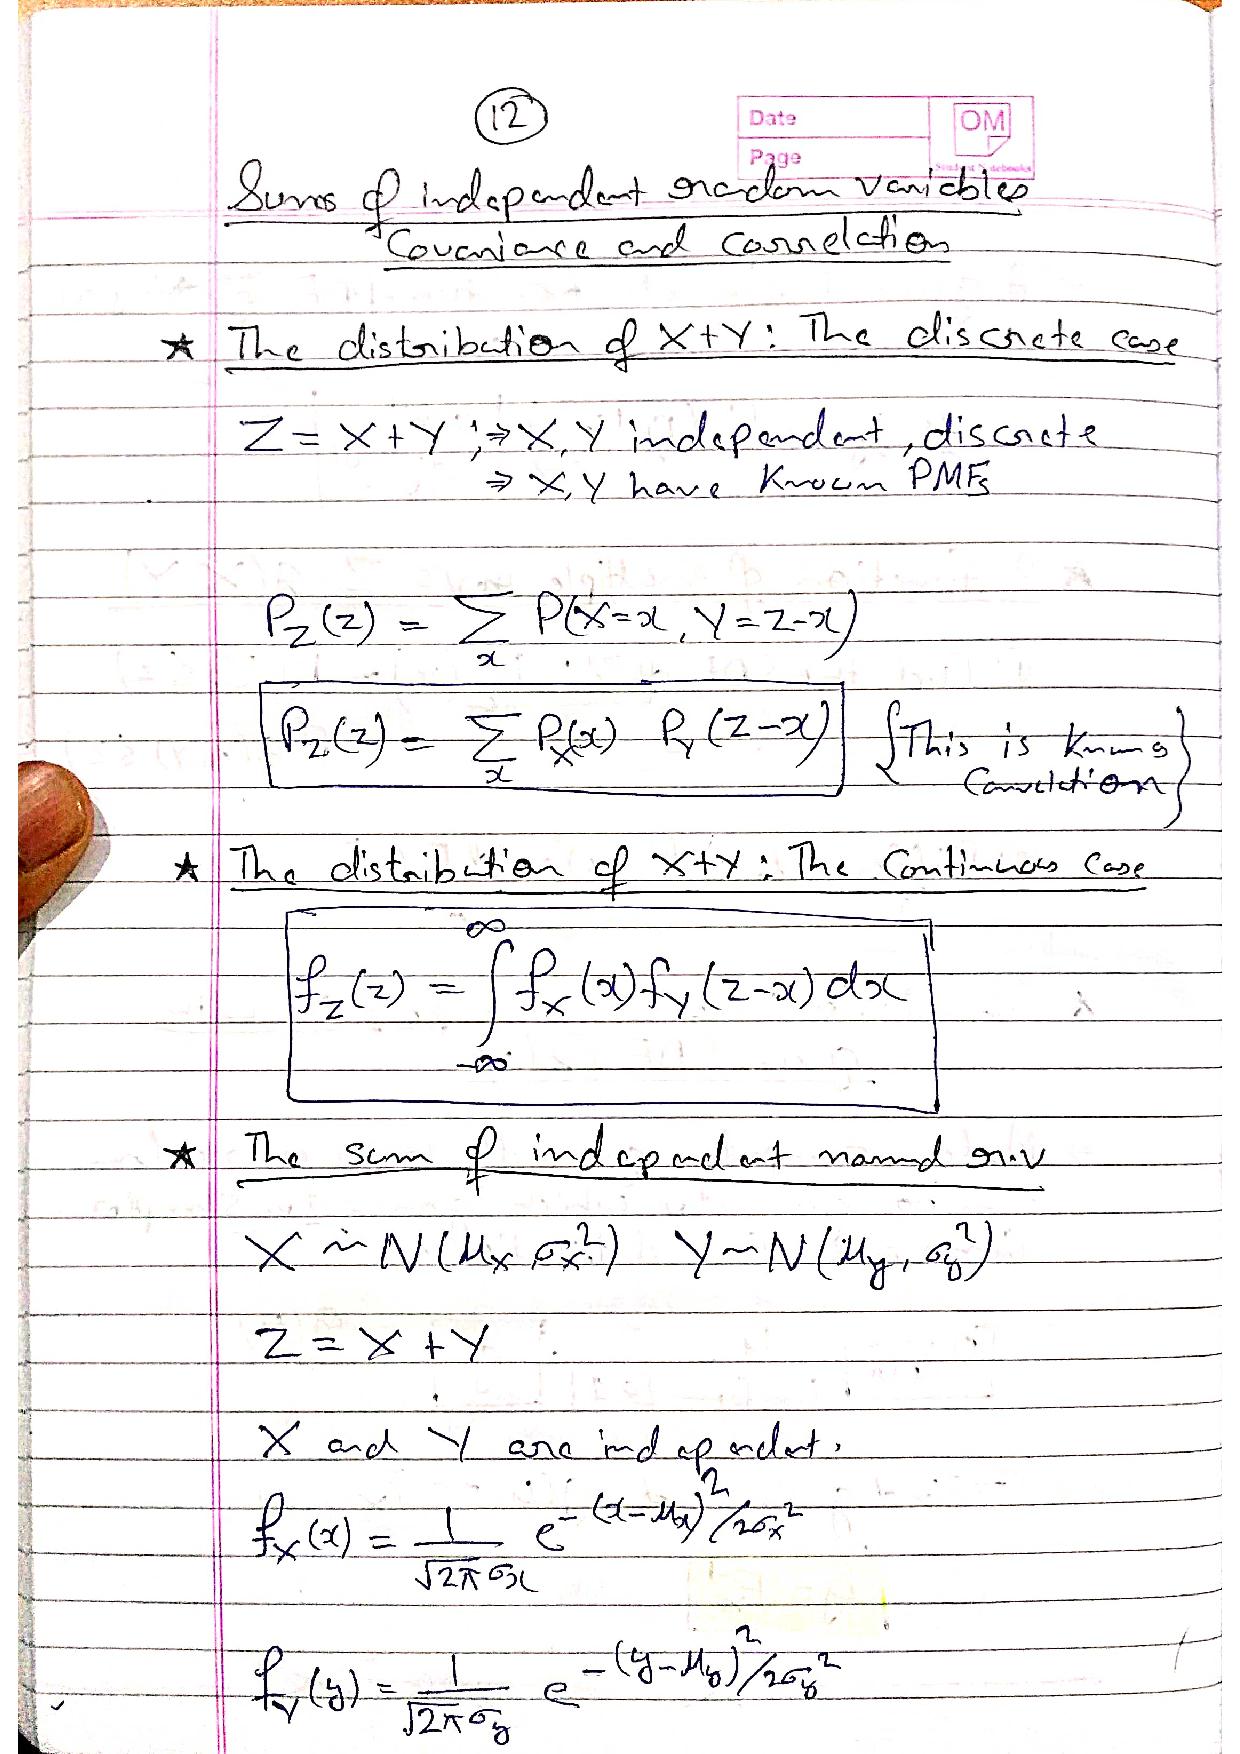 12
Date
OM
Page
Sums of independent random variables
Covariance and correlation
★ The distribution of X+Y: The discrete case
Z = X + Y ; ⇒ X, Y independent, discrete
⇒ X, Y have known PMFs
P_Z(z) = Σ_x P(X=x, Y=z-x)
P_Z(z) = Σ_x P_X(x) P_Y(z-x) {This is
★ The distribution of X+Y: The Continuous Case
f_Z(z) = ∫_{-∞}^{∞} f_X(x) f_Y(z-x) dx
★ The sum of independent normal r.v
X ~ N(μ_x, σ_x²) Y ~ N(μ_y, σ_y²)
Z = X + Y
X and Y are independent.
f_X(x) = 1/(√2π σ_x) e^{-(x-μ_x)²/2σ_x²}
f_Y(y) = 1/(√2π σ_y) e^{-(y-μ_y)²/2σ_y²}